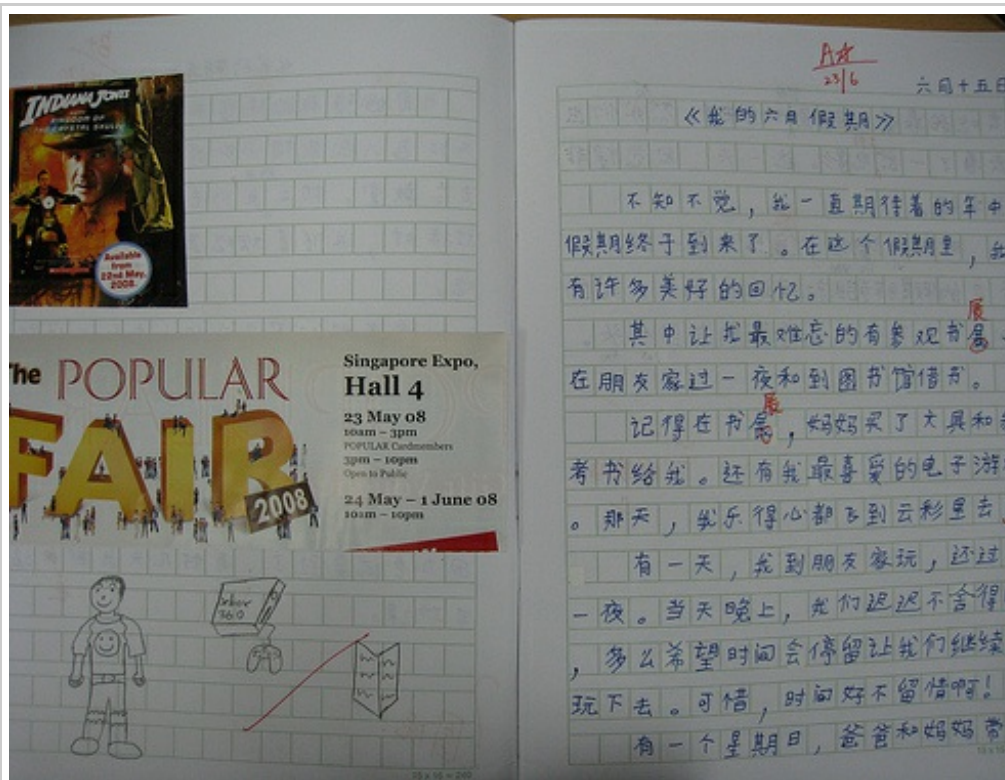 INDIANA JONES
KINGDOM OF
THE CRYSTAL SKULL
Available
from
22nd May,
2008.
The POPULAR
FAIR
2008
Singapore Expo,
Hall 4
23 May 08
10am – 3pm
POPULAR Cardmembers
3pm – 10pm
Open to Public
24 May – 1 June 08
10am – 10pm
360
A☆
23/6
六月十五日
《我的六月假期》
不知不觉，我一直期待着的年中
假期终于到来了。在这个假期里，我
有许多美好的回忆。
展
其中让我最难忘的有参观书
在朋友家过一夜和到图书馆借书。
展
记得在书，妈妈买了文具和
考书给我。还有我最喜爱的电子游
。那天，我乐得心都飞到云彩里去
有一天，我到朋友家玩，还过
一夜。当天晚上，我们迟迟不舍得
，多么希望时间会停留让我们继续
玩下去。可惜，时间好不留情啊！
有一个星期日，爸爸和妈妈带